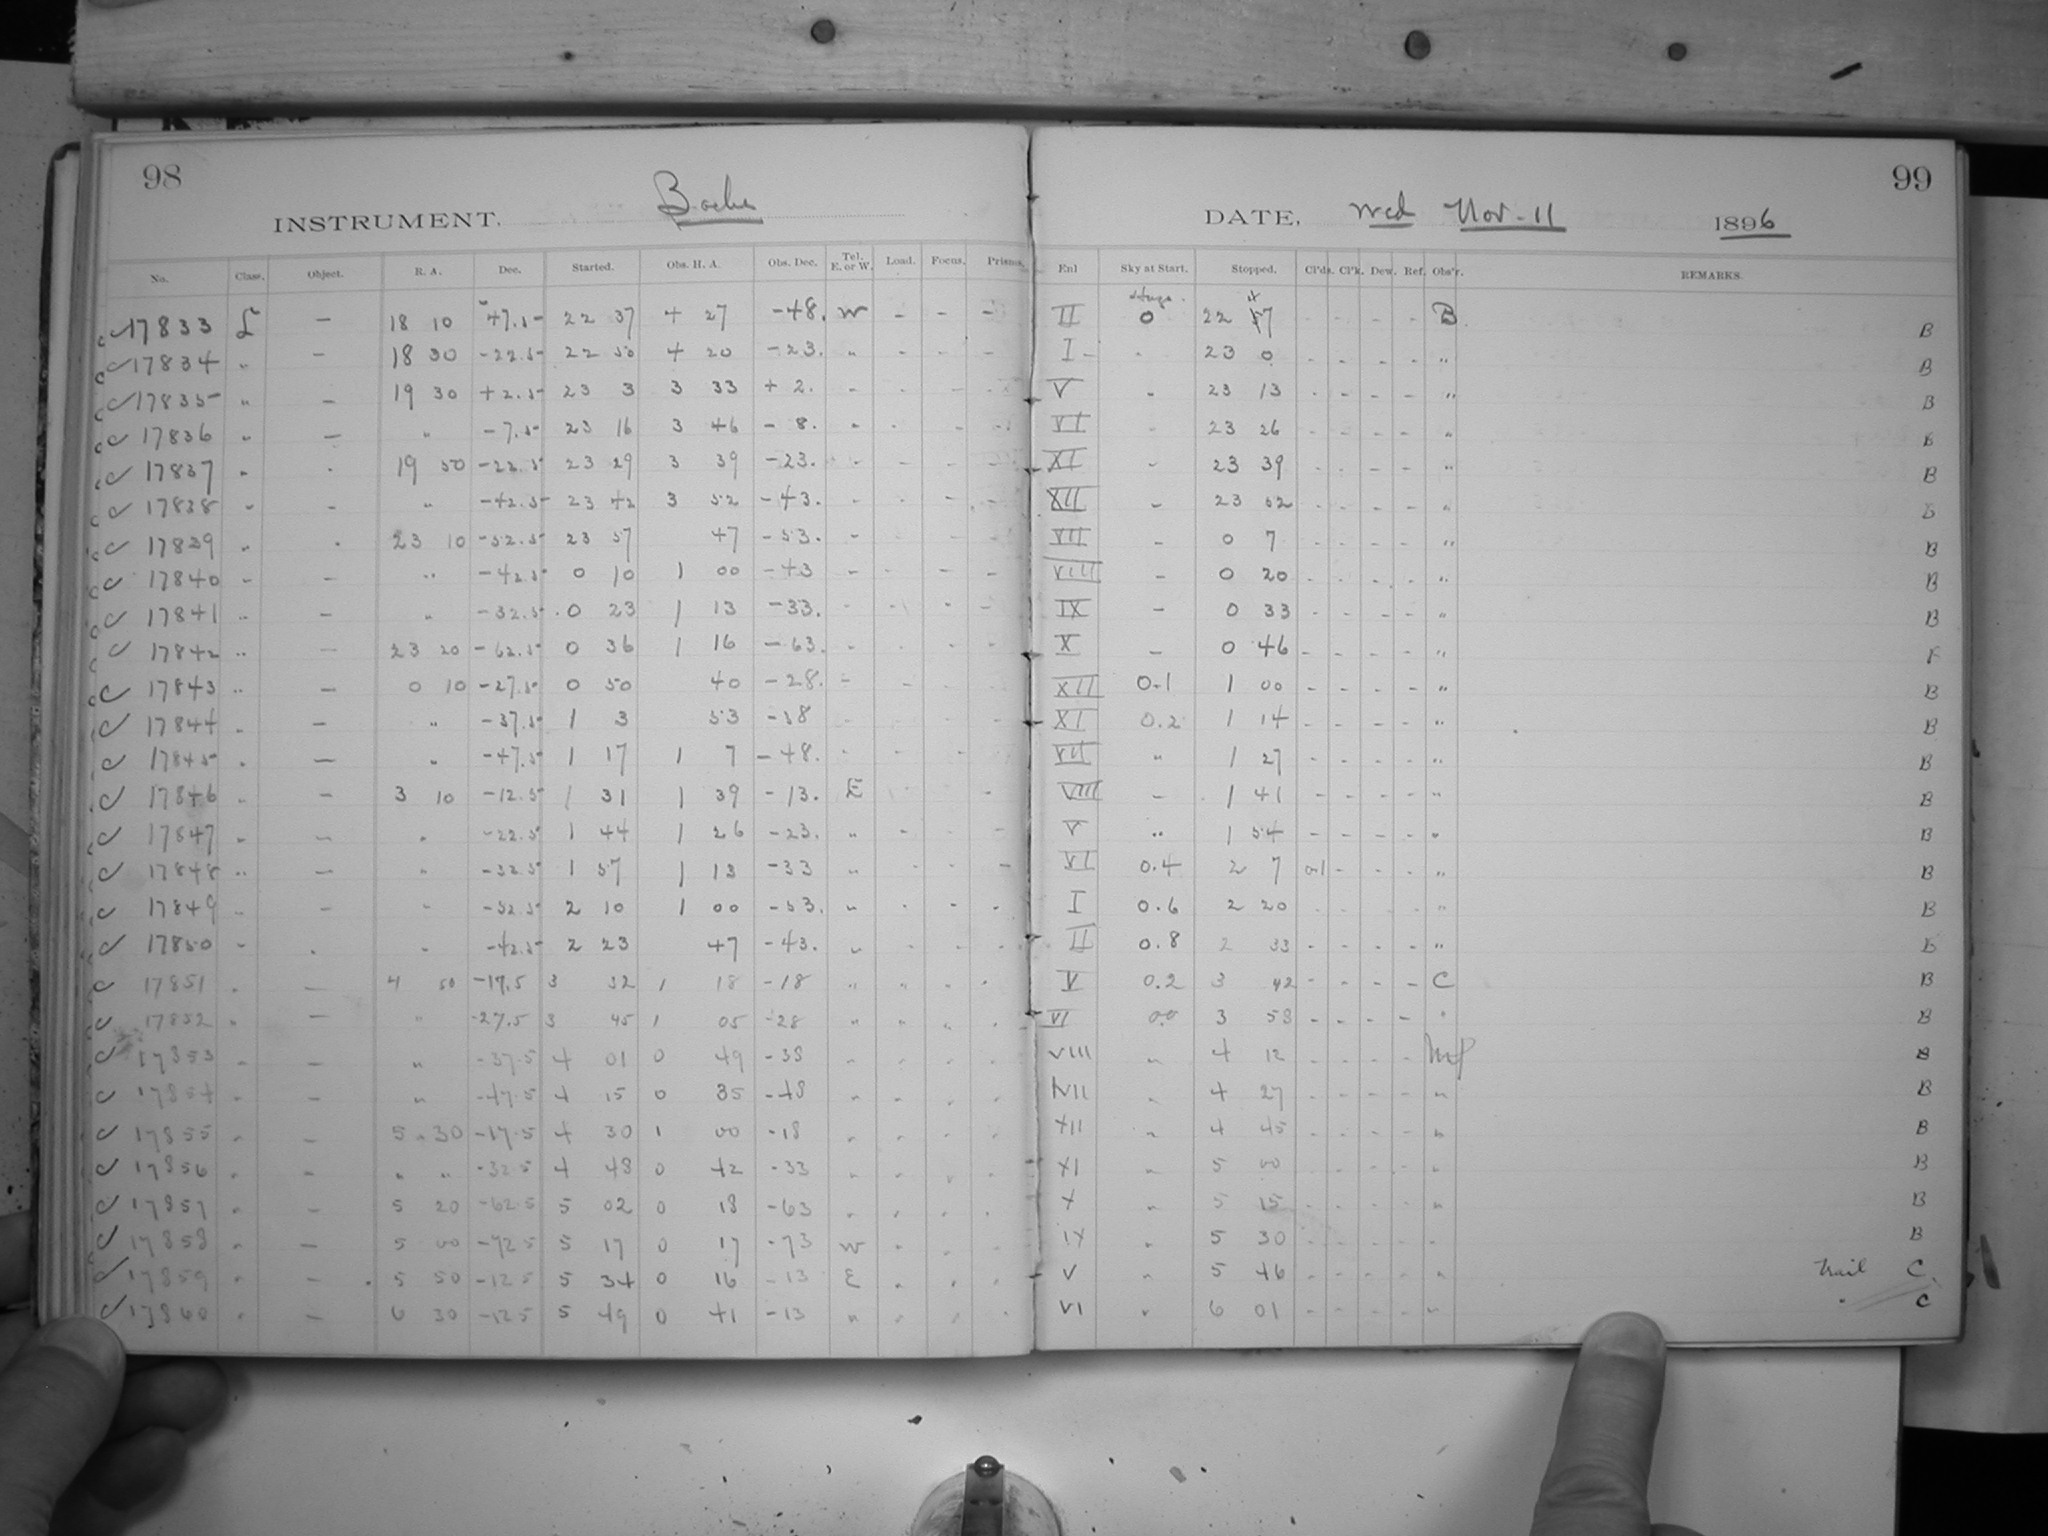 98
INSTRUMENT. Bache
No. Class. Object. R. A. Dec. Started. Obs. H. A. Obs. Dec. Tel. E. or W. Load. Focus. Prisms.
17833 L - 18 10 -47.5 22 37 4 27 -48. W - - -
17834 " - 18 30 -22.5 22 50 4 20 -23. " - - -
17835 " - 19 30 +2.5 23 3 3 33 +2. - - - -
17836 " - " -7.5 23 16 3 46 -8. " - - -
17837 " - 19 50 -22.5 23 29 3 39 -23. - - - -
17838 " - " -42.5 23 42 3 52 -43. - - - -
17839 " - 23 10 -52.5 23 57 47 -53. - - - -
17840 " - " -42.5 0 10 1 00 -43 - - - -
17841 " - " -32.5 0 23 1 13 -33. - - - -
17842 " - 23 20 -62.5 0 36 1 16 -63. - - - -
17843 " - 0 10 -27.5 0 50 40 -28. - - - -
17844 " - " -37.5 1 3 53 -38 - - - -
17845 " - " -47.5 1 17 1 7 -48. - - - -
17846 " - 3 10 -12.5 1 31 1 39 -13. E - - -
17847 " - " -22.5 1 44 1 26 -23. " - - -
17848 " - " -32.5 1 57 1 13 -33 " - - -
17849 " - " -52.5 2 10 1 00 -53. " - - -
17850 " - " -42.5 2 23 47 -43. " - - -
17851 " - 4 50 -17.5 3 32 1 18 -18 " " " "
17852 " - " -27.5 3 45 1 05 -28 " " " "
17853 " - " -37.5 4 01 0 49 -38 " " " "
17854 " - " -47.5 4 15 0 35 -48 " " " "
17855 " - 5 30 -17.5 4 30 1 00 -18 " " " "
17856 " - " " -32.5 4 48 0 42 -33 " " " "
17857 " - 5 20 -62.5 5 02 0 18 -63 " " " "
17858 " - 5 00 -72.5 5 17 0 17 -73 W " " "
17859 " - 5 50 -12.5 5 34 0 16 -13 E " " "
17860 " - 6 30 -12.5 5 49 0 41 -13 " " " "
99
DATE, Wed Nov. 11 1896
Enl Sky at Start. Stopped. Cl'ds. Cl'k. Dew. Ref. Obs'r. REMARKS.
II 0 22 47 - - - - B B
I - - 23 0 - - - - " B
V - 23 13 - - - - " B
VI - 23 26 - - - - " B
XI - 23 39 - - - - " B
XII - 23 52 - - - - " B
VII - 0 7 - - - - " B
VIII - 0 20 - - - - " B
IX - 0 33 - - - - " B
X - 0 46 - - - - "
XII 0.1 1 00 - - - - " B
XI 0.2 1 14 - - - - " B
VII " 1 27 - - - - " B
VIII - 1 41 - - - - " B
V " 1 54 - - - - " B
VI 0.4 2 7 0.1 - - - " B
I 0.6 2 20 - - - - " B
II 0.8 2 33 - - - - " B
V 0.2 3 42 - - - - C B
VI 0.0 3 58 - - - - " B
VIII " 4 12 - - - - B
VII " 4 27 - - - - " B
XII " 4 45 - - - - " B
XI " 5 00 - - - - " B
X " 5 15 - - - - " B
IX " 5 30 - - - - " B
V " 5 46 - - - - " trail C
VI " 6 01 - - - - " " C